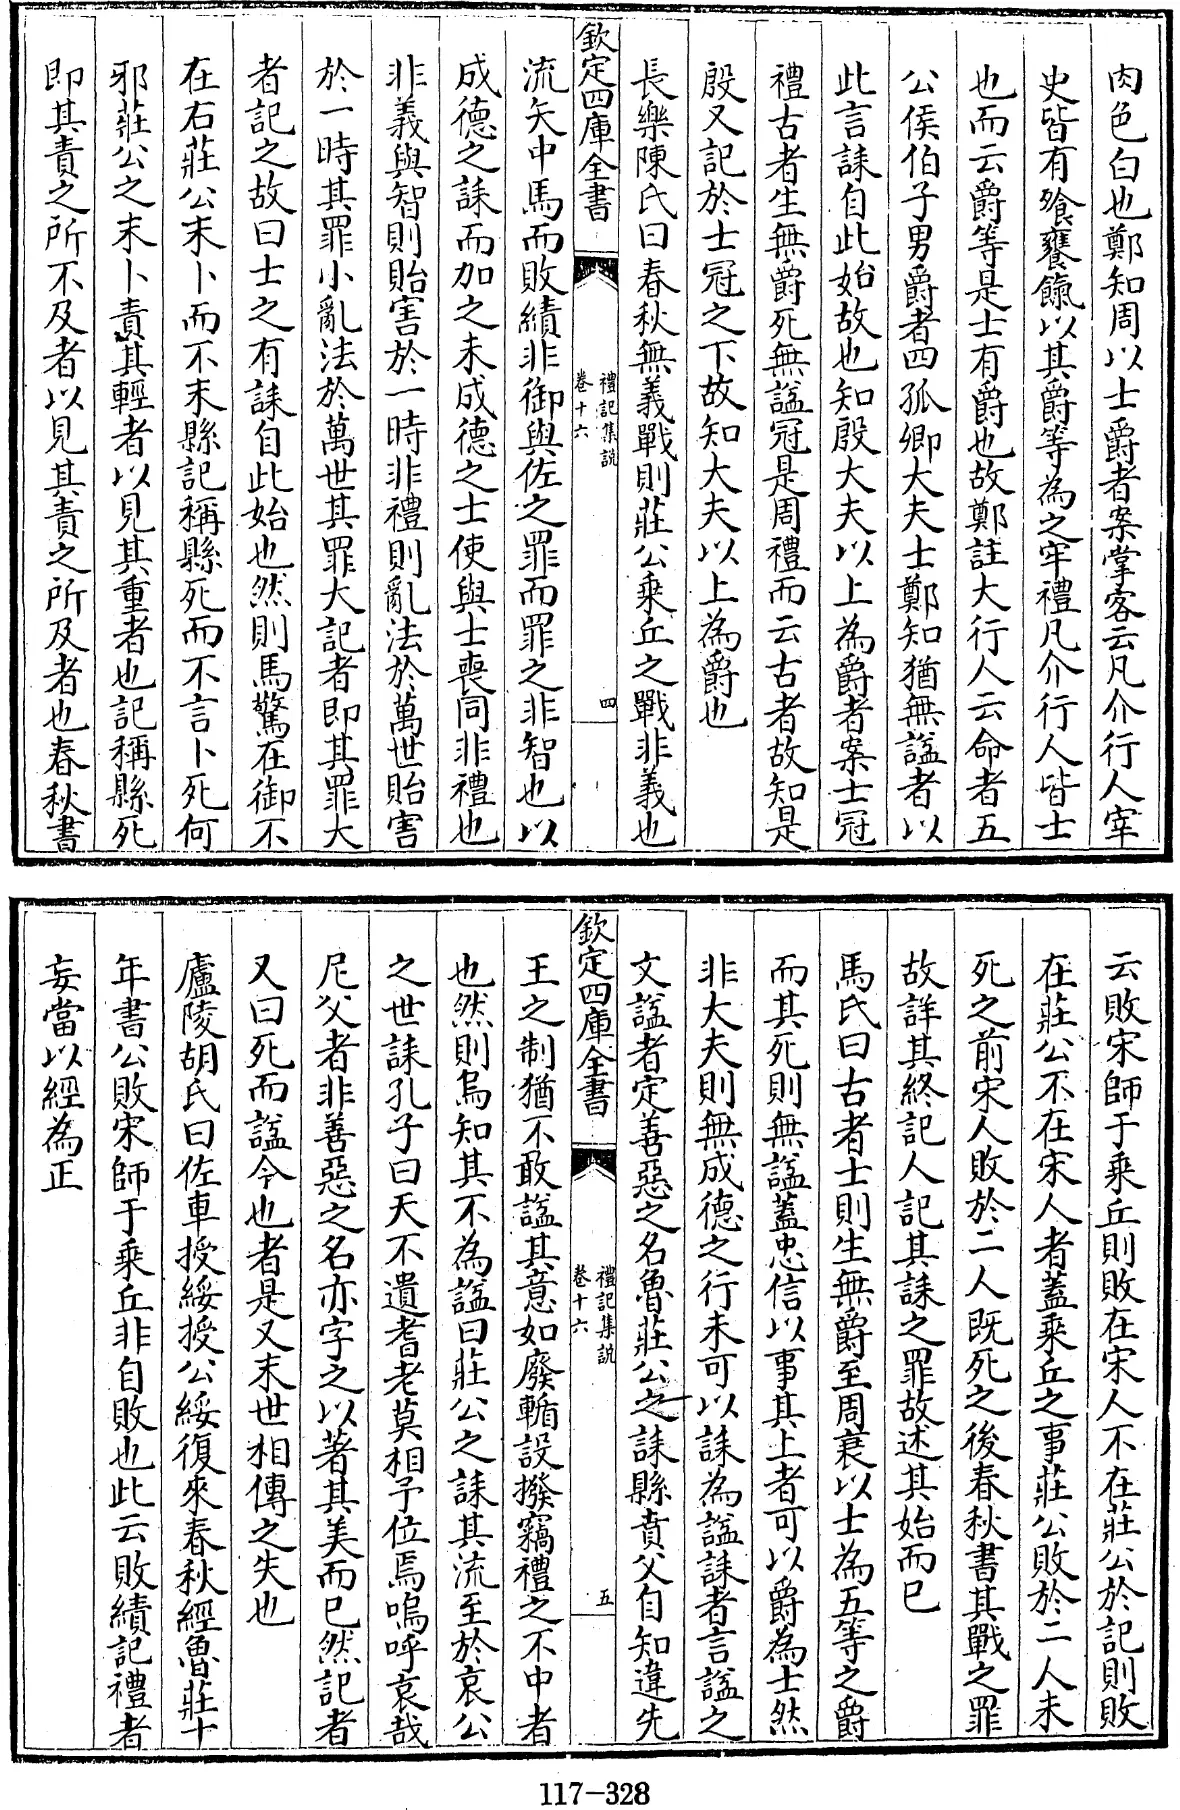 肉色白也鄭知周以士爵者案掌客云凡介行人宰
史皆有飱饔餼以其爵等為之牢禮凡介行人皆士
也而云爵等是士有爵也故鄭註大行人云命者五
公侯伯子男爵者四孤卿大夫士鄭知猶無諡者以
此言誄自此始故也知殷大夫以上為爵者案士冠
禮古者生無爵死無諡冠是周禮而云古者故知是
殷又記於士冠之下故知大夫以上為爵也
長樂陳氏曰春秋無義戰則莊公乘丘之戰非義也
欽定四庫全書
禮記集說
卷十六
四
流矢中馬而敗績非御與佐之罪而罪之非智也以
成德之誄而加之未成德之士使與士喪同非禮也
非義與智則貽害於一時非禮則亂法於萬世貽害
於一時其罪小亂法於萬世其罪大記者即其罪大
者記之故曰士之有誄自此始也然則馬驚在御不
在右莊公末卜而不末縣記稱縣死而不言卜死何
邪莊公之末卜責其輕者以見其重者也記稱縣死
即其責之所不及者以見其責之所及者也春秋書
云敗宋師于乘丘則敗在宋人不在莊公於記則敗
在莊公不在宋人者蓋乘丘之事莊公敗於二人未
死之前宋人敗於二人既死之後春秋書其戰之罪
故詳其終記人記其誄之罪故述其始而已
馬氏曰古者士則生無爵至周衰以士為五等之爵
而其死則無諡蓋忠信以事其上者可以爵為士然
非大夫則無成德之行未可以誄為諡誄者言諡之
文諡者定善惡之名魯莊公之誄縣賁父自知違先
欽定四庫全書
禮記集說
卷十六
五
王之制猶不敢諡其意如廢輴設撥竊禮之不中者
也然則烏知其不為諡曰莊公之誄其流至於哀公
之世誄孔子曰天不遺耆老莫相予位焉嗚呼哀哉
尼父者非善惡之名亦字之以著其美而已然記者
又曰死而諡今也者是又末世相傳之失也
廬陵胡氏曰佐車授綏授公綏復來春秋經魯莊十
年書公敗宋師于乘丘非自敗也此云敗績記禮者
妄當以經為正
117-328